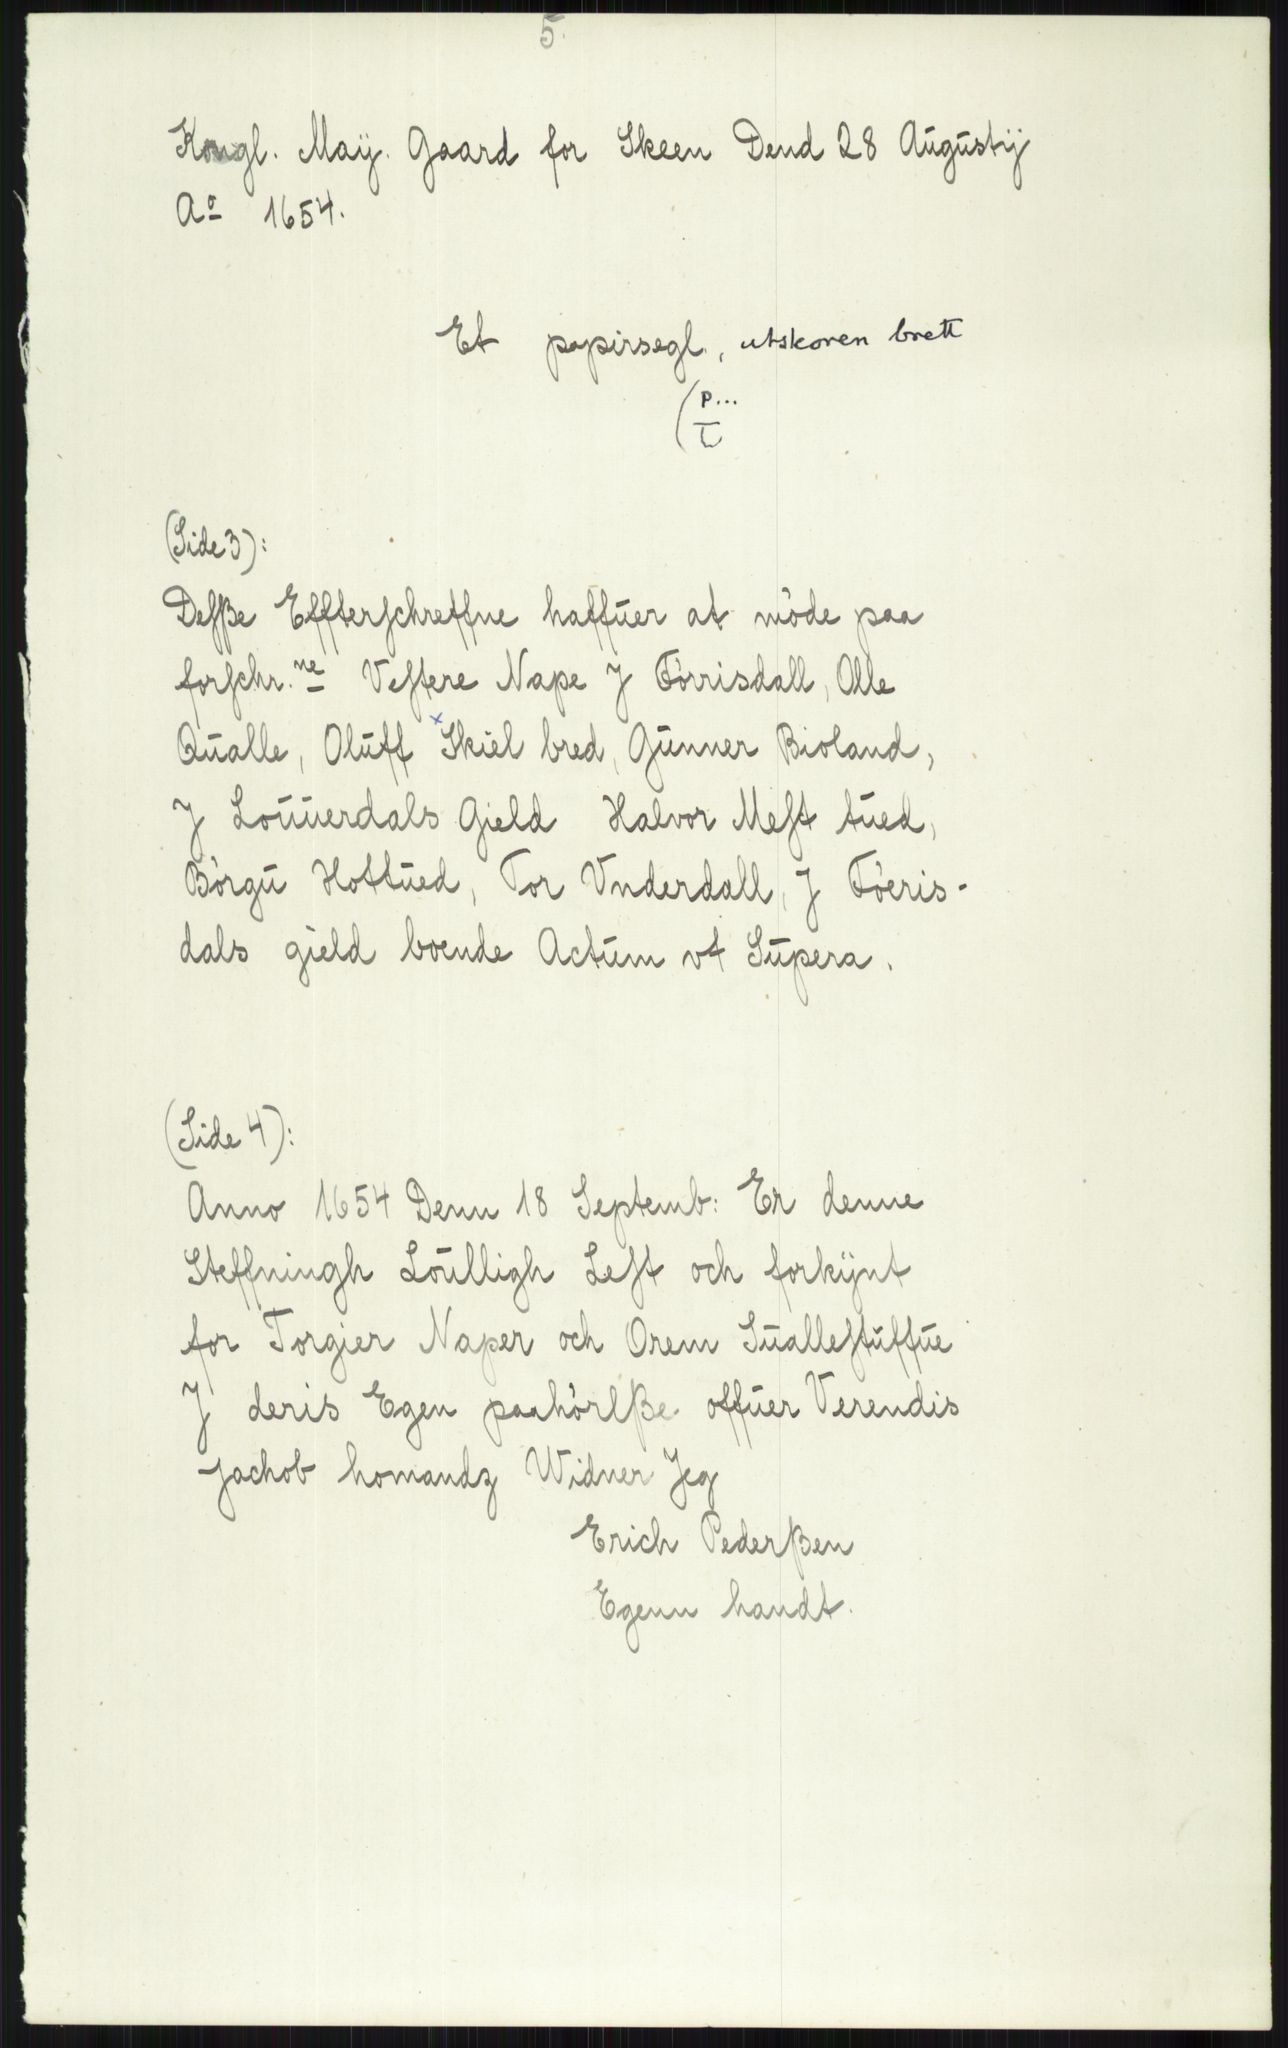 5.
Kongl. Maÿ. Gaard for Skeen Dend 28 Augustij
Aº 1654.
Et papirsegl, utskoren brett
(P...
T
(Side 3):
Desße Effterschreffne haffuer at möde paa
forschr.ne Vestere Nape J Förrisdall, Olle
Qualle, Oluff Skiel bred, Gunner Bioland,
J Louuerdals Gield Halvor Mest tued,
Börgu Hottued, Tor Vnderdall, J Föeris-
dals gield boende Actum vt Supera.
(Side 4):
Anno 1654 Denn 18 Septemb: Er denne
Steffningh Loulligh Lest och forkÿnt
for Torgier Naper och Orem Suallestuffue
J deris Egen paahörlße offuer Verendis
Jachob homandz Widner Jeg
Erich Pederßen
Egenn handt.